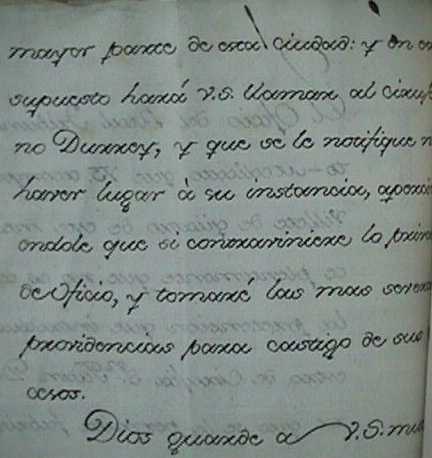 mayor parte de esta ciudad: y en
supuesto hará V.S. llamar al ciruj
no Durrey, y que se le notifique
haver lugar à su instancia, aperci
endole que si contraviniere lo
de oficio, y tomaré las mas
providencias para castigo de sus
esos.
Dios guarde a V.S. mu